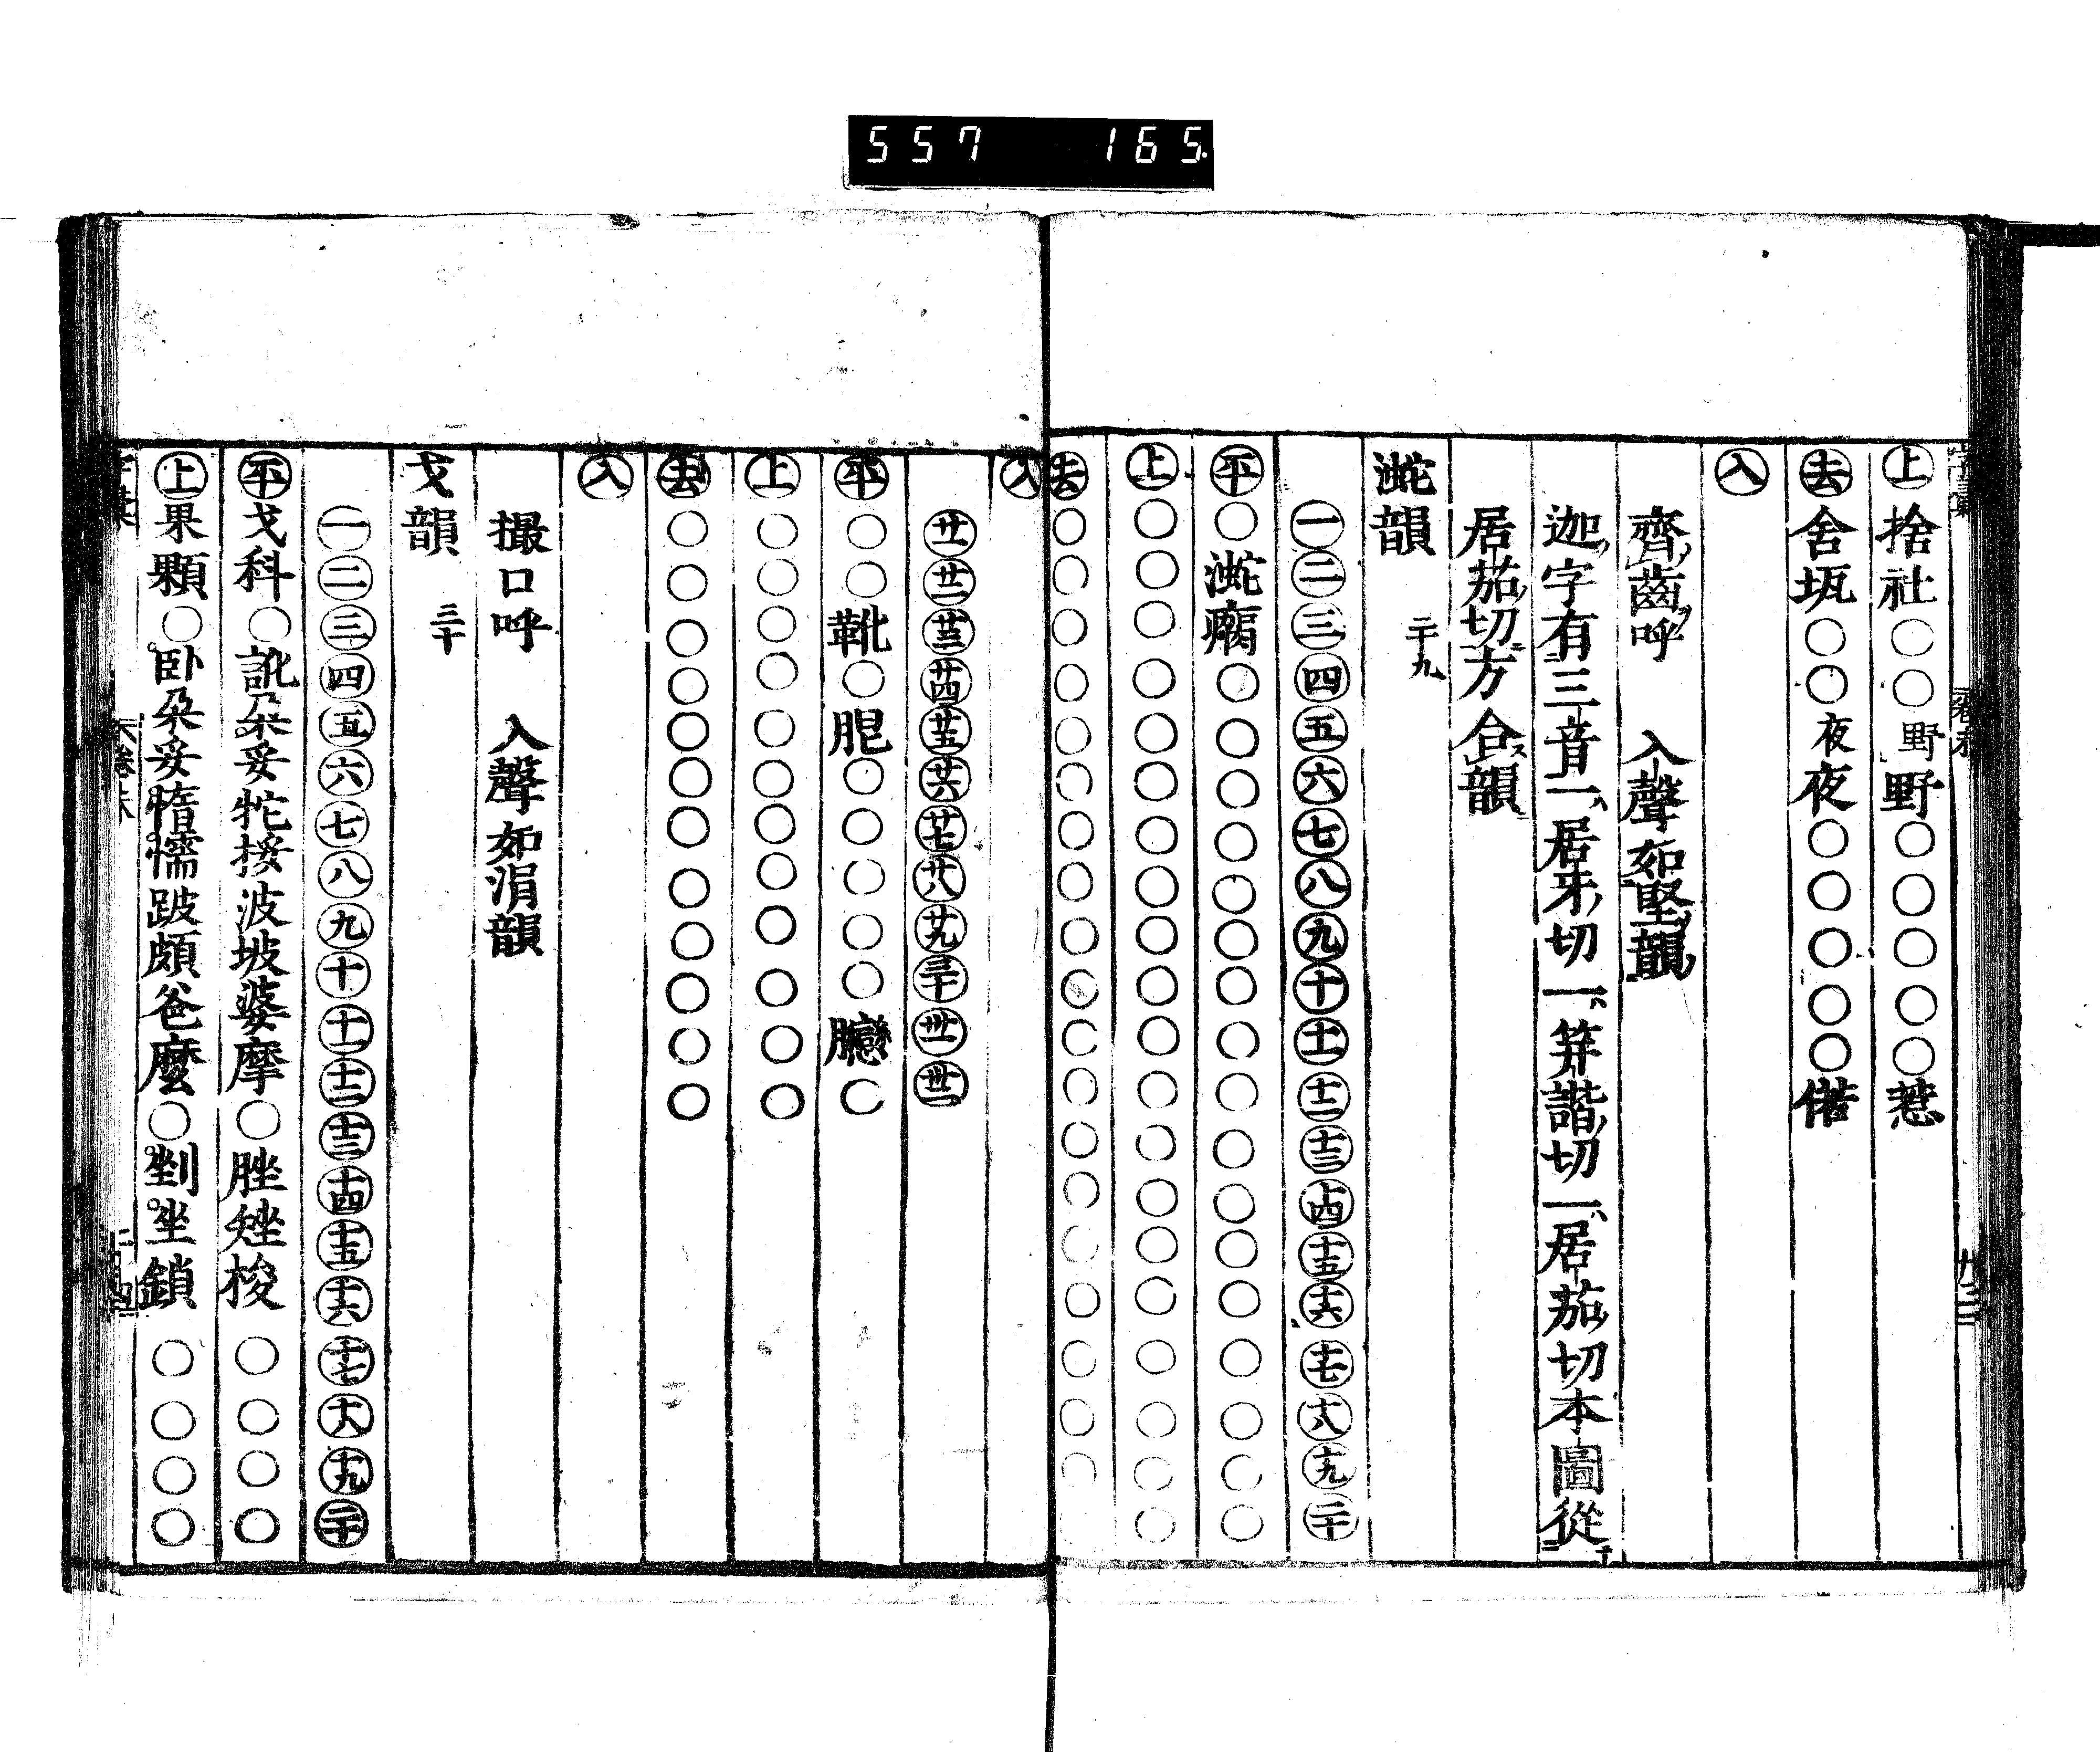 557 165.
上捨社○○野野○○○○○惹
去舍坬○○夜夜○○○○○偌
入
齊齒呼 入聲如堅韻
迦字有三音一居牙切一笄諧切一居茄切本圖從
居茄切方合韻
𣵠韻 二十九
一二三四五六七八九十十一十二十三十四十五十六十七十八十九二十
平○𣵠瘸○○○○○○○○○○○○○○○○○
上○○○○○○○○○○○○○○○○○○○○
去○○○○○○○○○○○○○○○○○○○
入
廿一廿二廿三廿四廿五廿六廿七廿八廿九三十卅一卅二
平○○靴○胆○○○○○臠○
上○○○○○○○○○○○○
去○○○○○○○○○○○○
入
撮口呼 入聲如涓韻
戈韻 三十
一二三四五六七八九十十一十二十三十四十五十六十七十八十九二十
平戈科○訛朶妥牠挼波坡婆摩○脞矬梭○○○○
上果顆○卧朶妥惰懦跛頗爸麼○剉坐鎖○○○○